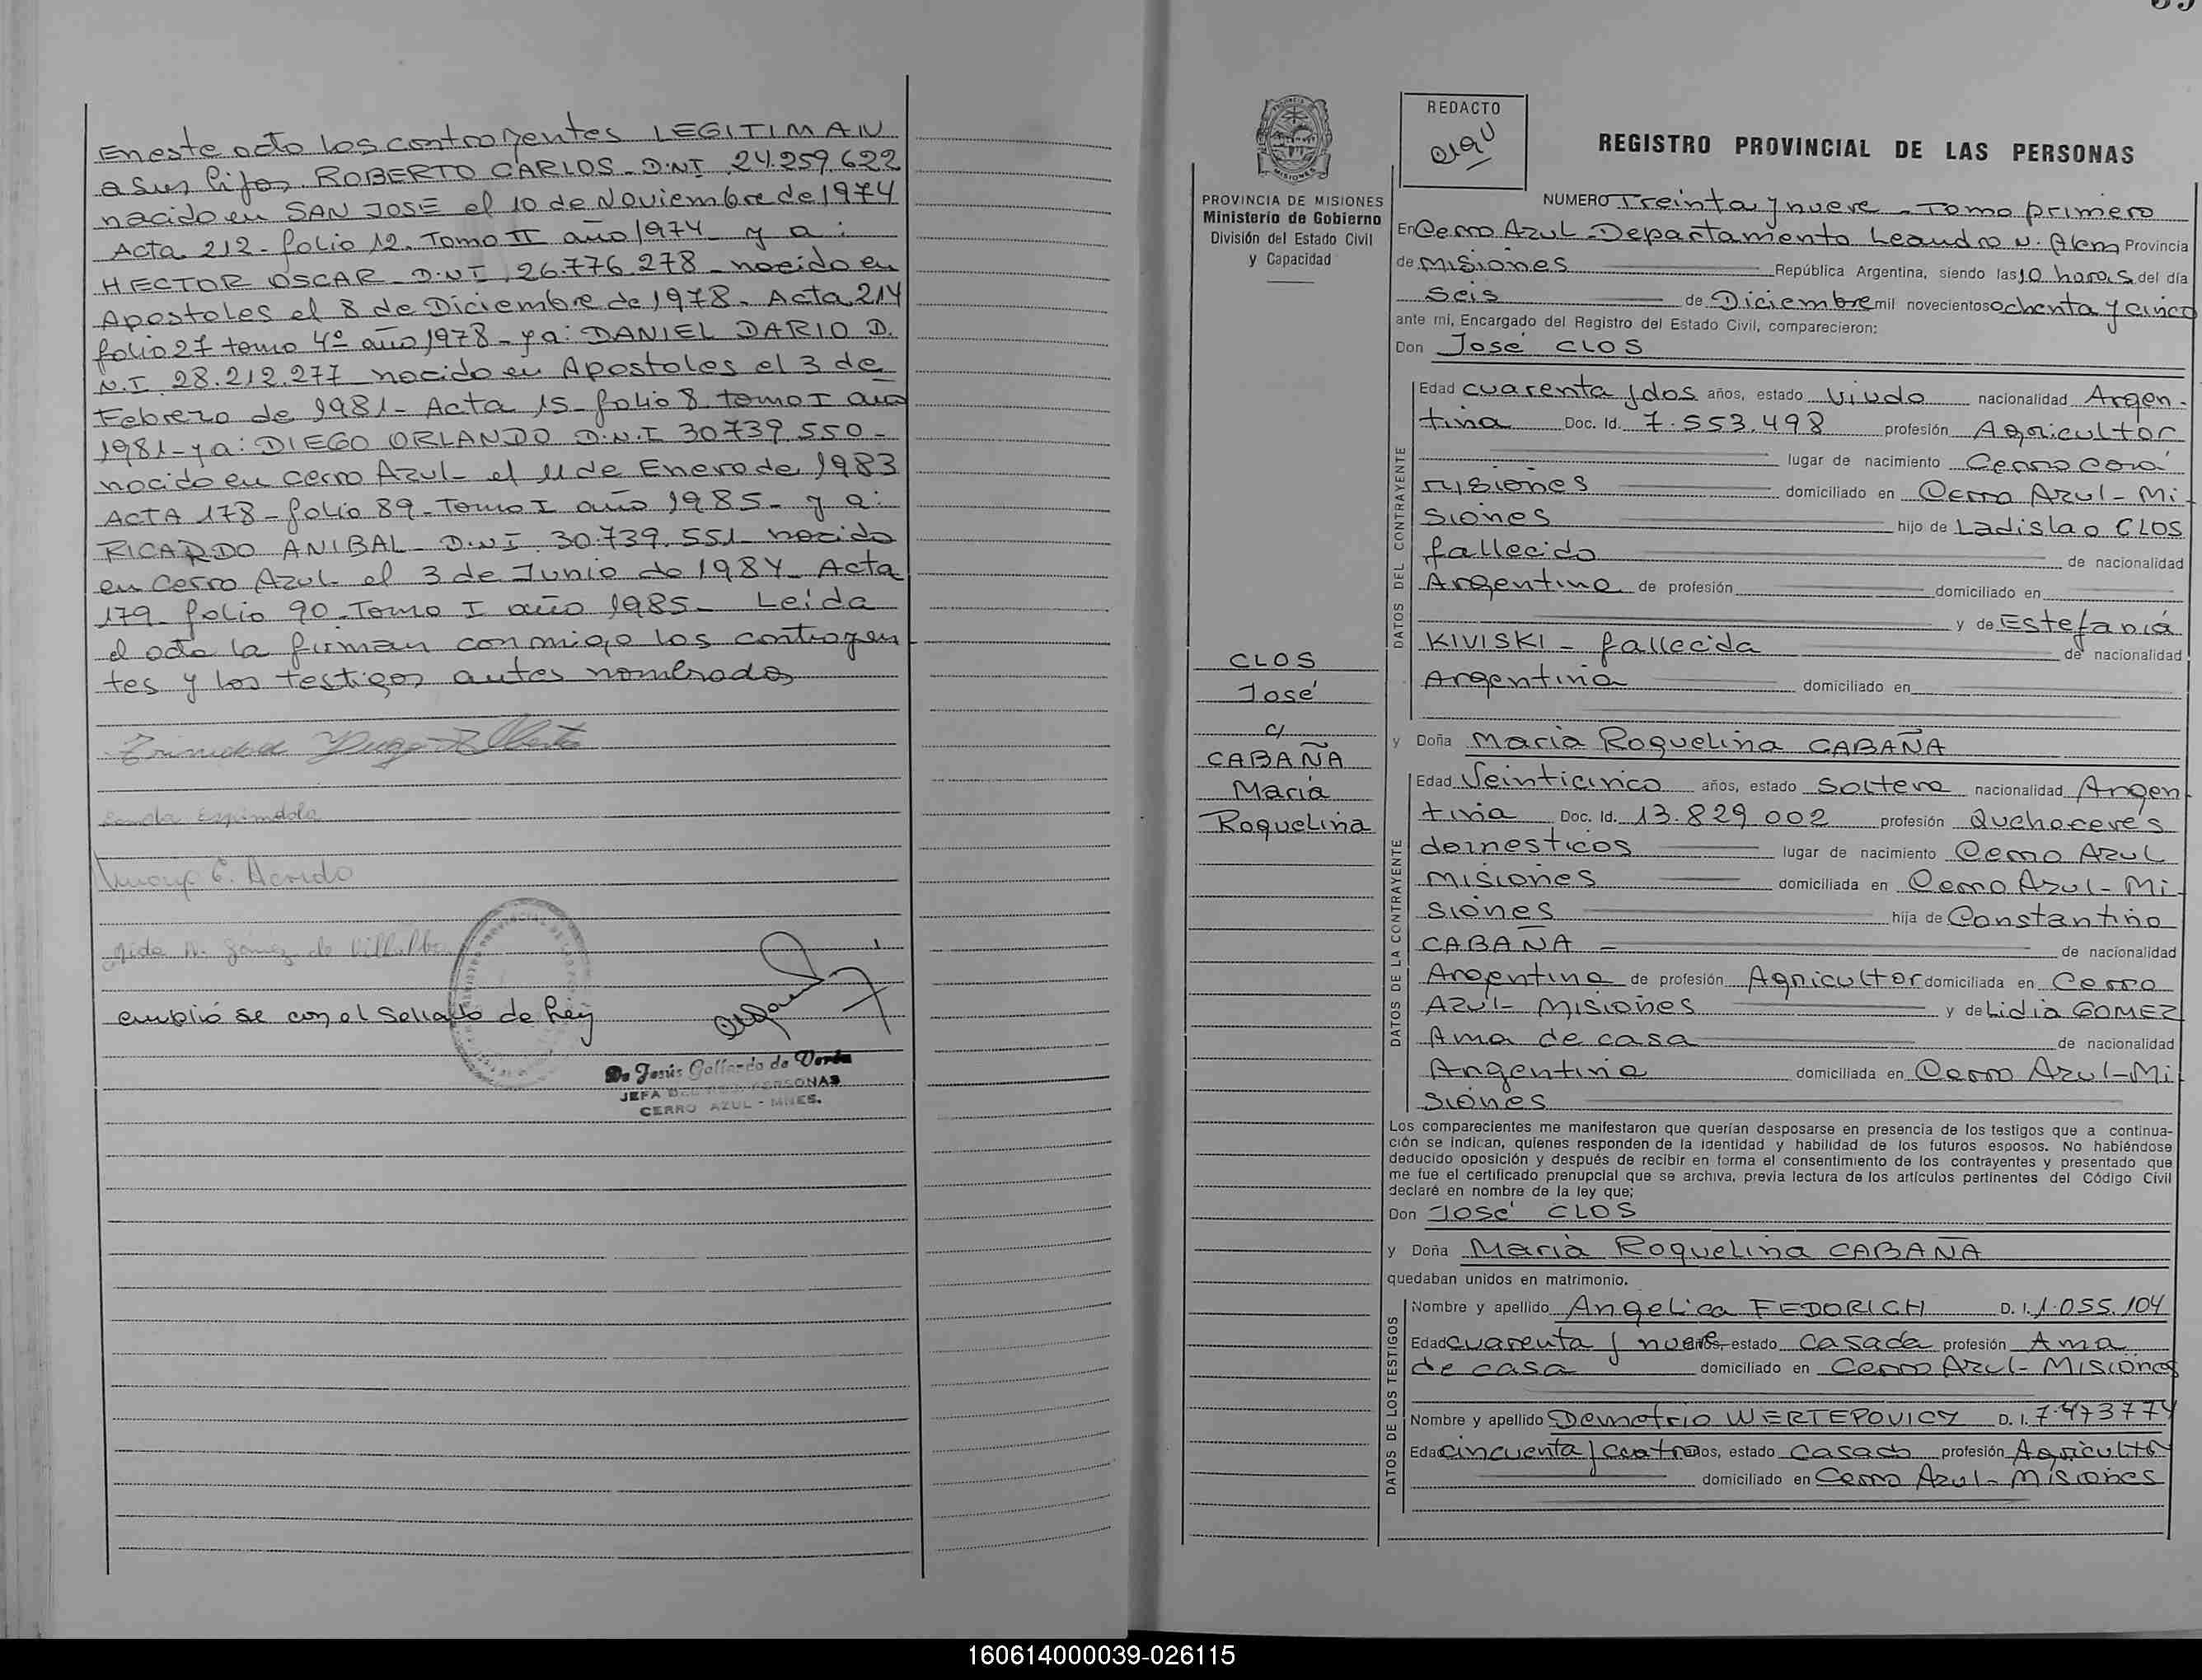 En este acto los contrayentes LEGITIMAN
a sus hijos ROBERTO CARLOS - D.N.I. 24.259.622
nacido en SAN JOSE el 10 de Noviembre de 1974
Acta 212 - folio 12. Tomo II año 1974 y a:
HECTOR OSCAR - D.N.I. 26.776.278 - nacido en
Apostoles el 8 de Diciembre de 1978. Acta 214
folio 27 tomo 4º año 1978 - y a: DANIEL DARIO D.
N.I. 28.212.277 nacido en Apostoles el 3 de
Febrero de 1981 - Acta 15 - folio 8 tomo I año
1981 - y a: DIEGO ORLANDO D.N.I 30739.550 -
nacido en cerro Azul - el 11 de Enero de 1983
ACTA 178 - folio 89 - Tomo I año 1985 - y a:
RICARDO ANIBAL - D.N.I. 30.739.551 - nacido
en Cerro Azul el 3 de Junio de 1984 - Acta
179 - folio 90 - Tomo I año 1985 - Leida
el acta la firman conmigo los contrayen
tes y los testigos antes nombrados
Espindola
C. Acevedo
de Villalba
se con el Sellado de Ley
De Jesús Gallardo de Verón
JEFA PERSONAS
CERRO AZUL - MNES.
PROVINCIA DE MISIONES
Ministerio de Gobierno
División del Estado Civil
y Capacidad
CLOS
José
c/
CABAÑA
Maria
Roquelina
REDACTO
REGISTRO PROVINCIAL DE LAS PERSONAS
NUMERO Treinta y nueve - Tomo primero
En Cerro Azul - Departamento Leandro N. Alem Provincia
de Misiones República Argentina, siendo las 10 horas del día
Seis de Diciembre mil novecientos ochenta y cinco
ante mi, Encargado del Registro del Estado Civil, comparecieron:
Don José CLOS
DATOS DEL CONTRAYENTE
Edad cuarenta y dos años, estado Viudo nacionalidad Argen-
tina Doc. Id. 7.553.498 profesión Agricultor
lugar de nacimiento Cerro Corá
Misiones domiciliado en Cerro Azul - Mi
siones hijo de Ladislao CLOS
fallecido de nacionalidad
Argentina de profesión domiciliado en
y de Estefania
KIVISKI - fallecida de nacionalidad
Argentina domiciliado en
y Doña Maria Roquelina CABAÑA
DATOS DE LA CONTRAYENTE
Edad Veinticinco años, estado Soltera nacionalidad Argen
tina Doc. Id. 13.829.002 profesión Quehaceres
domesticos lugar de nacimiento Cerro Azul
Misiones domiciliada en Cerro Azul - Mi
siones hija de Constantino
CABAÑA - de nacionalidad
Argentina de profesión Agricultor domiciliada en Cerro
Azul - Misiones y de Lidia GOMEZ
Ama de casa de nacionalidad
Argentina domiciliada en Cerro Azul - Mi
siones
Los comparecientes me manifestaron que querían desposarse en presencia de los testigos que a continua-
ción se indican, quienes responden de la identidad y habilidad de los futuros esposos. No habiéndose
deducido oposición y después de recibir en forma el consentimiento de los contrayentes y presentado que
me fue el certificado prenupcial que se archiva, previa lectura de los artículos pertinentes del Código Civil
declaré en nombre de la ley que;
Don José CLOS
y Doña Maria Roquelina CABAÑA
quedaban unidos en matrimonio.
DATOS DE LOS TESTIGOS
Nombre y apellido Angelica FEDORICH D. I. 1.055.104
Edad cuarenta y nueve años, estado Casada profesión Ama
de casa domiciliado en Cerro Azul - Misiones
Nombre y apellido Demetrio WERTEPOVICZ D. I. 7.473774
Edad cincuenta y cuatro años, estado Casado profesión Agricultor
domiciliado en Cerro Azul - Misiones
160614000039-026115